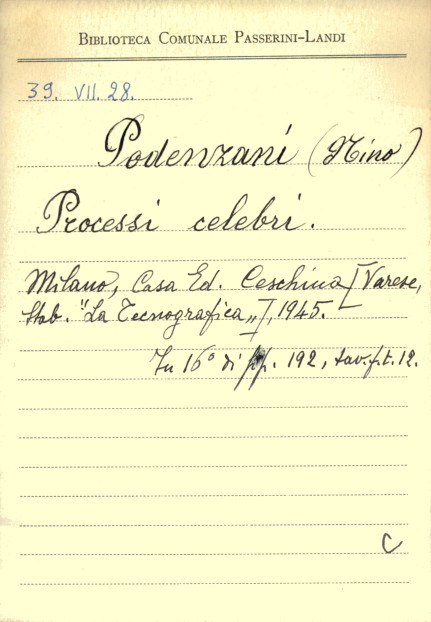 BIBLIOTECA COMUNALE PASSERINI-LANDI
39. VII. 28.
Podenzani (Nino)
Processi celebri.
Milano, Casa Ed. Ceschina [Varese,
Stab. "La Tecnografica"], 1945.
In 16° di pp. 192, tav. f. t. 12.
C